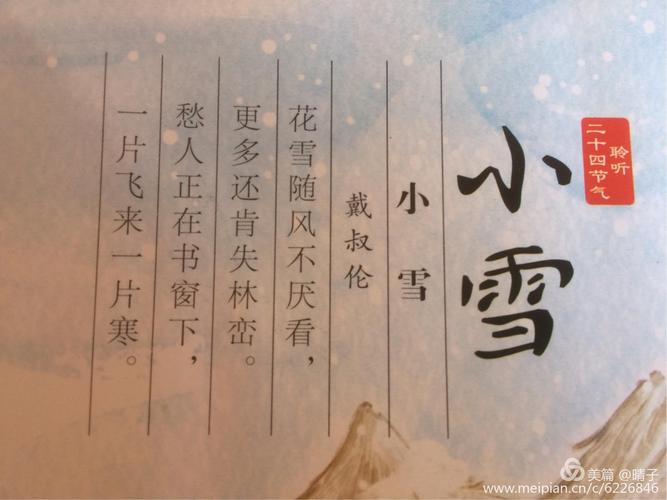 聆听
二十四节气
小雪
小雪
戴叔伦
花雪随风不厌看，
更多还肯失林峦。
愁人正在书窗下，
一片飞来一片寒。
美篇 @晴子
www.meipian.cn/c/6226846